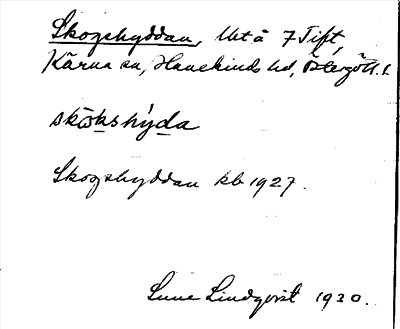 Skogshyddan, Utå 7 Tift,
Kärna sn, Hanekinds hd, Östergötl. l.
skoↄkshy̍da
Skogshyddan kb 1927.
Sune Lindqvist 1930.